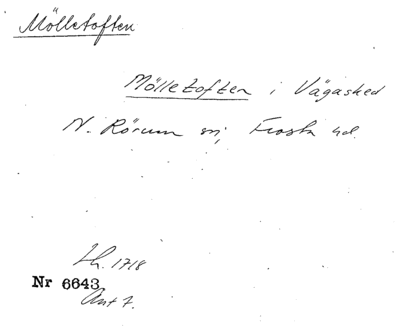 Mölletoften
Mölletoften i Vägasked
N. Rörum sn; Frosta hd.
Lh. 1718
Nr 6643
Ant 7.